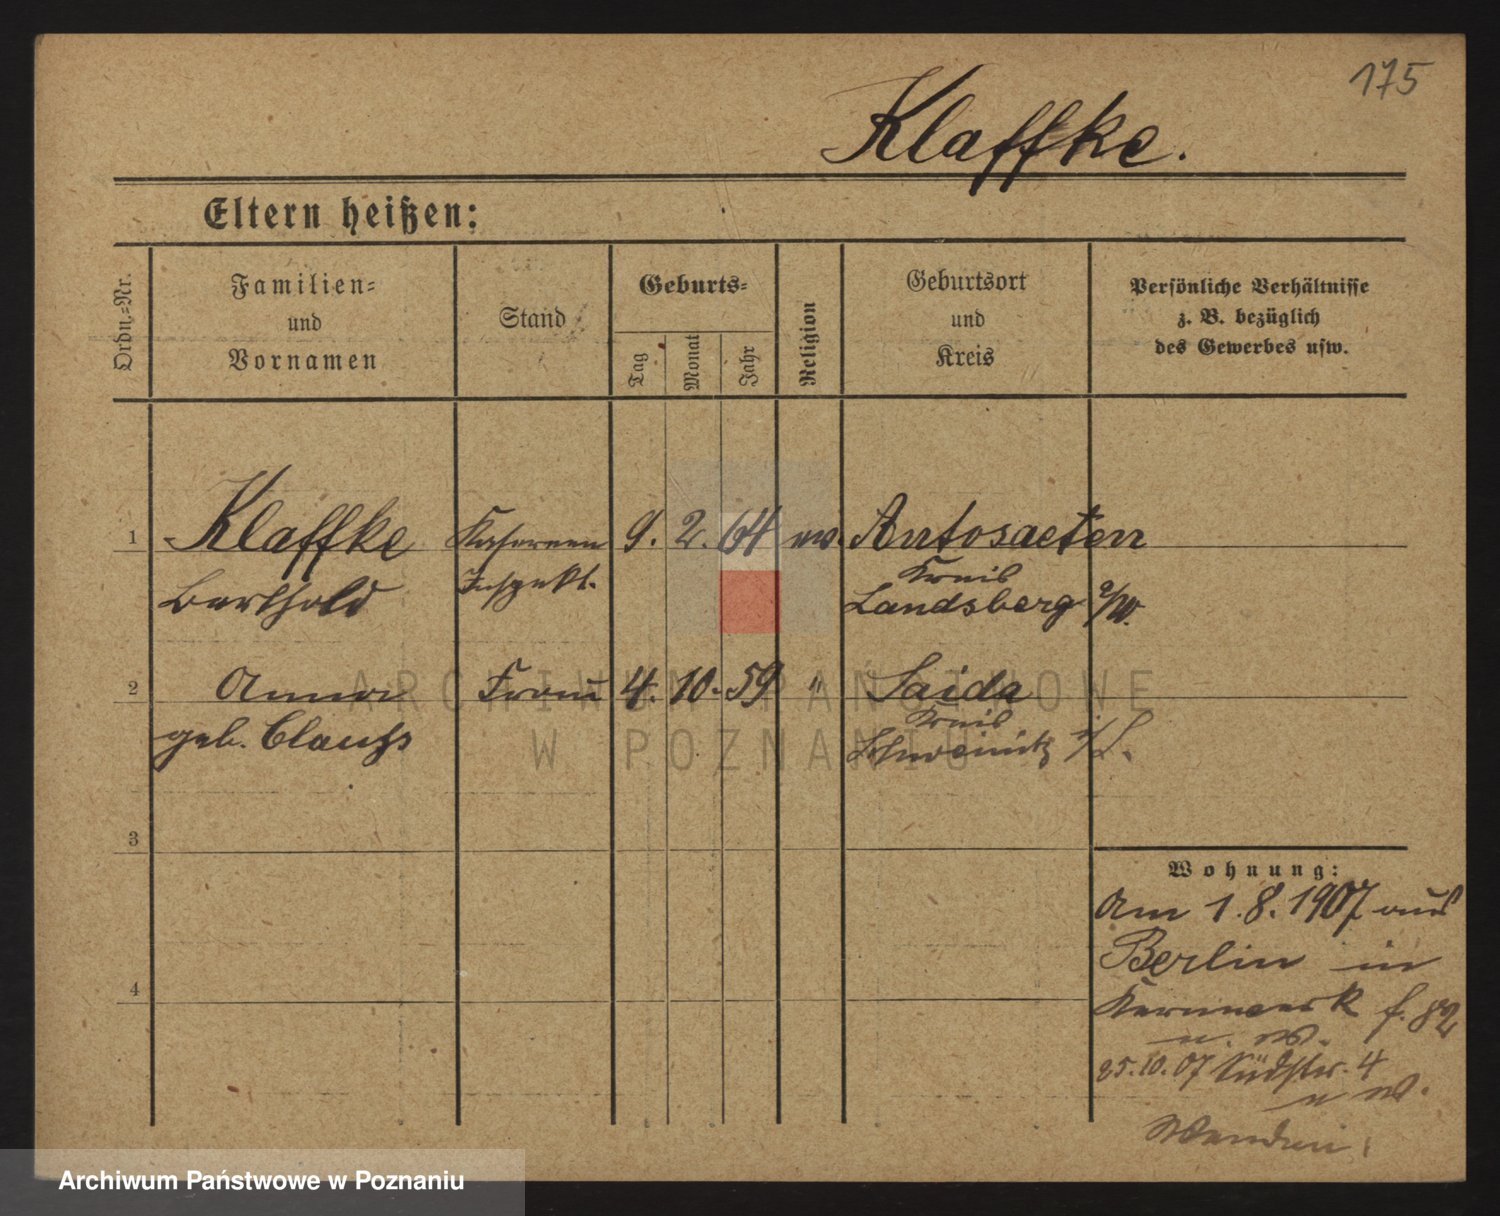 175
Klaffke.
Eltern heißen:
Ordn.-Nr.
Familien=
und
Vornamen
Stand
Geburts=
Tag
Monat
Jahr
Religion
Geburtsort
und
Kreis
Persönliche Verhältnisse
z. B. bezüglich
des Gewerbes usw.
1 Klaffke Kasernen 9. 2. 64 ev. Antosaeten
Berthold Inspekt. Kreis
Landsberg a/W.
2 Anna Frau 4. 10. 59 " Saida
geb. Clauß Kreis
Schweinitz i/L.
3
4
Wohnung:
Am 1.8.1907 aus
Berlin in
Kernwerk f. 82
u. W.
25.10.07 Südstr. 4
u W.
Wenden!
ARCHIWUM PAŃSTWOWE
W POZNANIU
Archiwum Państwowe w Poznaniu